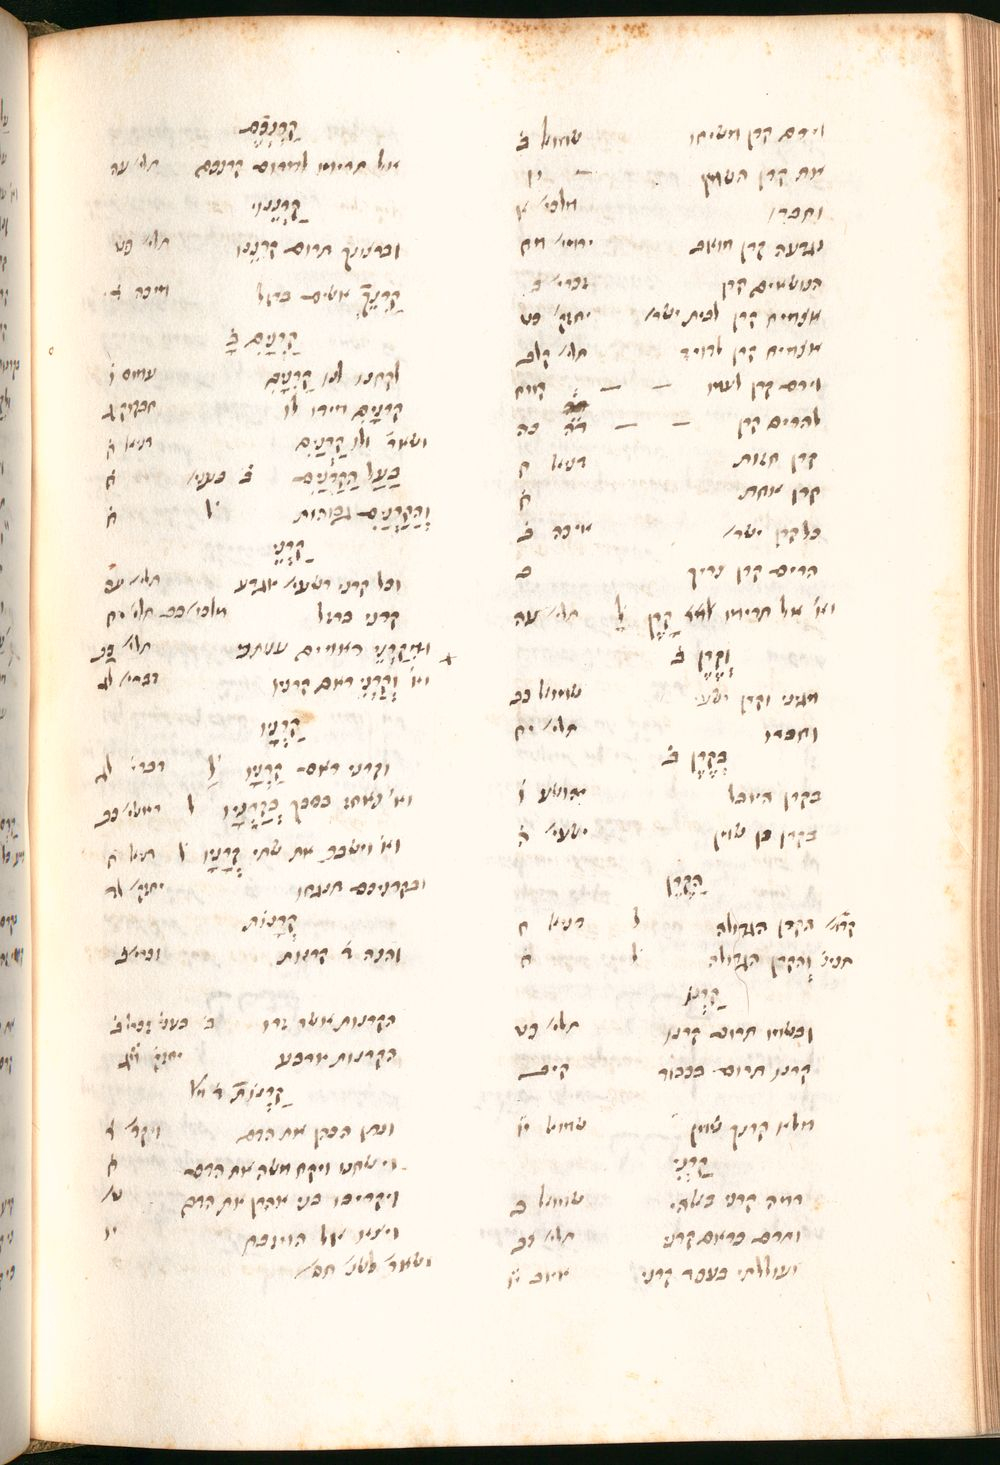 וירם קרן משיחו שמואל ב
את קרן השמן — יו
וחברו מלכי׳ א
נגדעה קרן מואב ירמי׳ מח
הנושאים קרן זכרי׳ ב
אצמיח קרן לבית ישר׳ יחזק׳ כט
אצמיח קרן לדויד תלי׳ קלב
וירם קרן לעמו — — קמח
להרים קרן — — כה
קרן חזות דניא׳ ח
קרן אחת ח
כל קרן ישר׳ איכה ב
הרים קרן צריך ב
וא׳ אל תרימו קרן ל׳ תלי׳ עה
וקרן ב
מגיני וקרן ישעי שמואל כב
וחברו תלי׳ יח
בקרן ב
בקרן היובל יהושע ו
בקרן בן שמן ישעי׳ ה
הקרן
הקרן הגדולה ל דניא׳ ח
והקרן הגדולה ל ח
קרנו
ובשמי תרום קרנו תלי׳ פט
קרנו תרום בכבוד קיב
מלא קרנך שמן שמואל יו
קרני
רמה קרני בשהי שמואל ב
ותרם כראם קרני תלי׳ צב
ועוללתי בעפר קרני איוב יו
קרנכם
אל תרימו למרום קרנכם תלי׳ עה
קרננו
וברצונך תרום קרננו תלי׳ פט
קרנך אשים ברזל מיכה ד
קרנים ב
לקחנו לנו קרנים עמוס ו
קרנים מידו לו חבקוק ג
ושאר׳ ולו קרנים דניא׳ ח
בעל הקרנים ב בעניי׳ ח
והקרנים גבוהות ל ח
קרני
וכל קרני רשעי׳ אגדע תלי׳ עה
קרני ברזל מלכי׳ כב
ומקרני ראמים עניתני תלי׳ כב
וא׳ וקרני ראם קרניו דברי׳ לג
קרניו
וקרני ראם קרניו ל דברי׳ לג
וא׳ נאחז בסבך בקרניו ל ראשי׳ כב
וא׳ וישבר את שתי קרניו ל דניא׳ ח
ובקרניכם תנגחו יחזק׳ לד
קרנות
והנה ד קרנות זכרי׳ ב
הקרנות אשר זרו ב בעני׳ זכרי׳ ב
הקרנות ארבע יחזק׳ מג
קרנות
ונתן הכהן את הדם ויקר׳ ד
וישחט ויקח משה את הדם ח
ויקריבו בני אהרן את הדם ט
ויצא אל המזבח יו